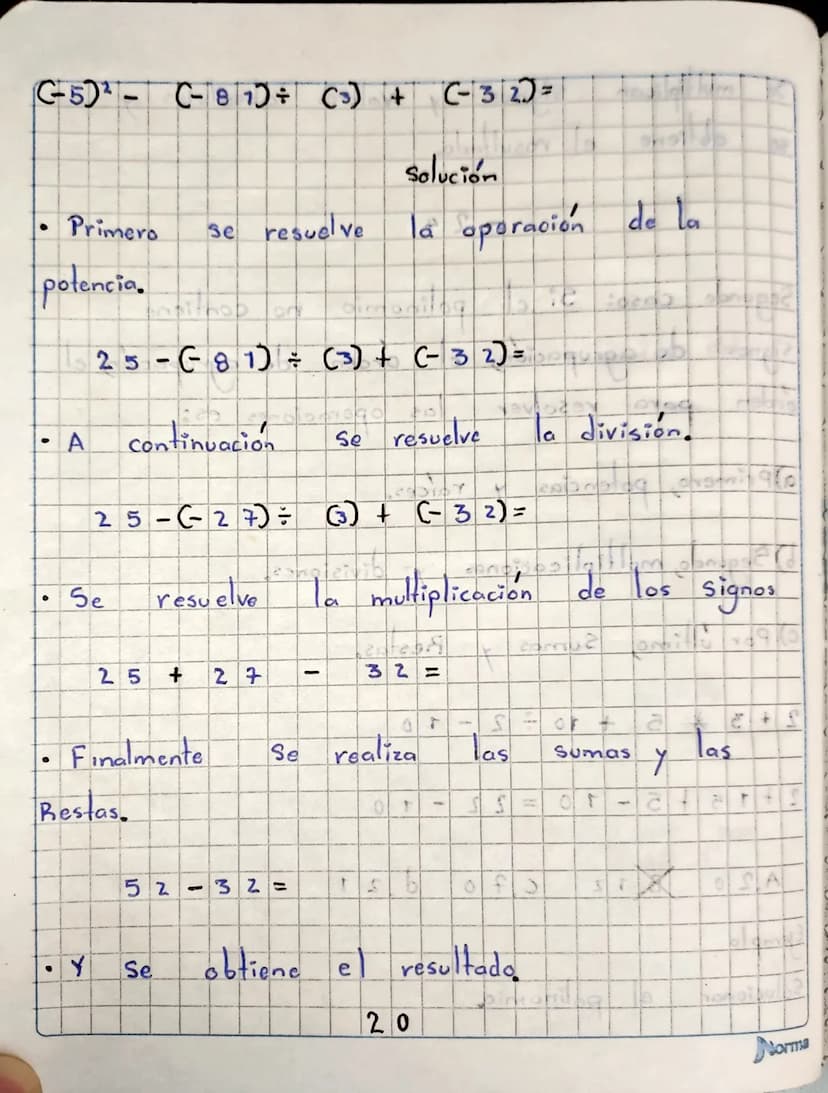 (-5)² - (-81) ÷ (3) + (-32) =
Solución
• Primero se resuelve la oporación de la
potencia.
25 - (-81) ÷ (3) + (-32) =
• A continuación se resuelve la división.
25 - (-27) ÷ (3) + (-32) =
• Se resuelve la multiplicación de los signos
25 + 27 - 32 =
• Finalmente se realiza las sumas y las
Restas.
52 - 32 =
• Y se obtiene el resultado.
20
Norma